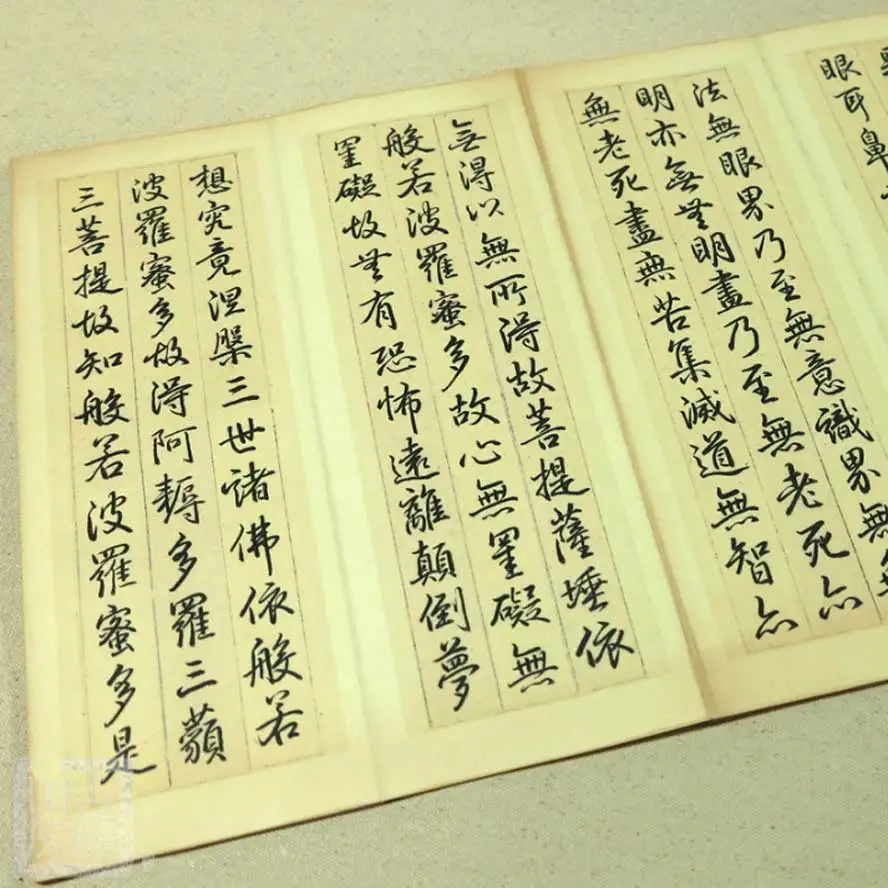 眼耳鼻
法無眼界乃至無意識界無無
明亦無無明盡乃至無老死亦
無老死盡無苦集滅道無智亦
無得以無所得故菩提薩埵依
般若波羅蜜多故心無罣礙無
罣礙故無有恐怖遠離顛倒夢
想究竟涅槃三世諸佛依般若
波羅蜜多故得阿耨多羅三藐
三菩提故知般若波羅蜜多是